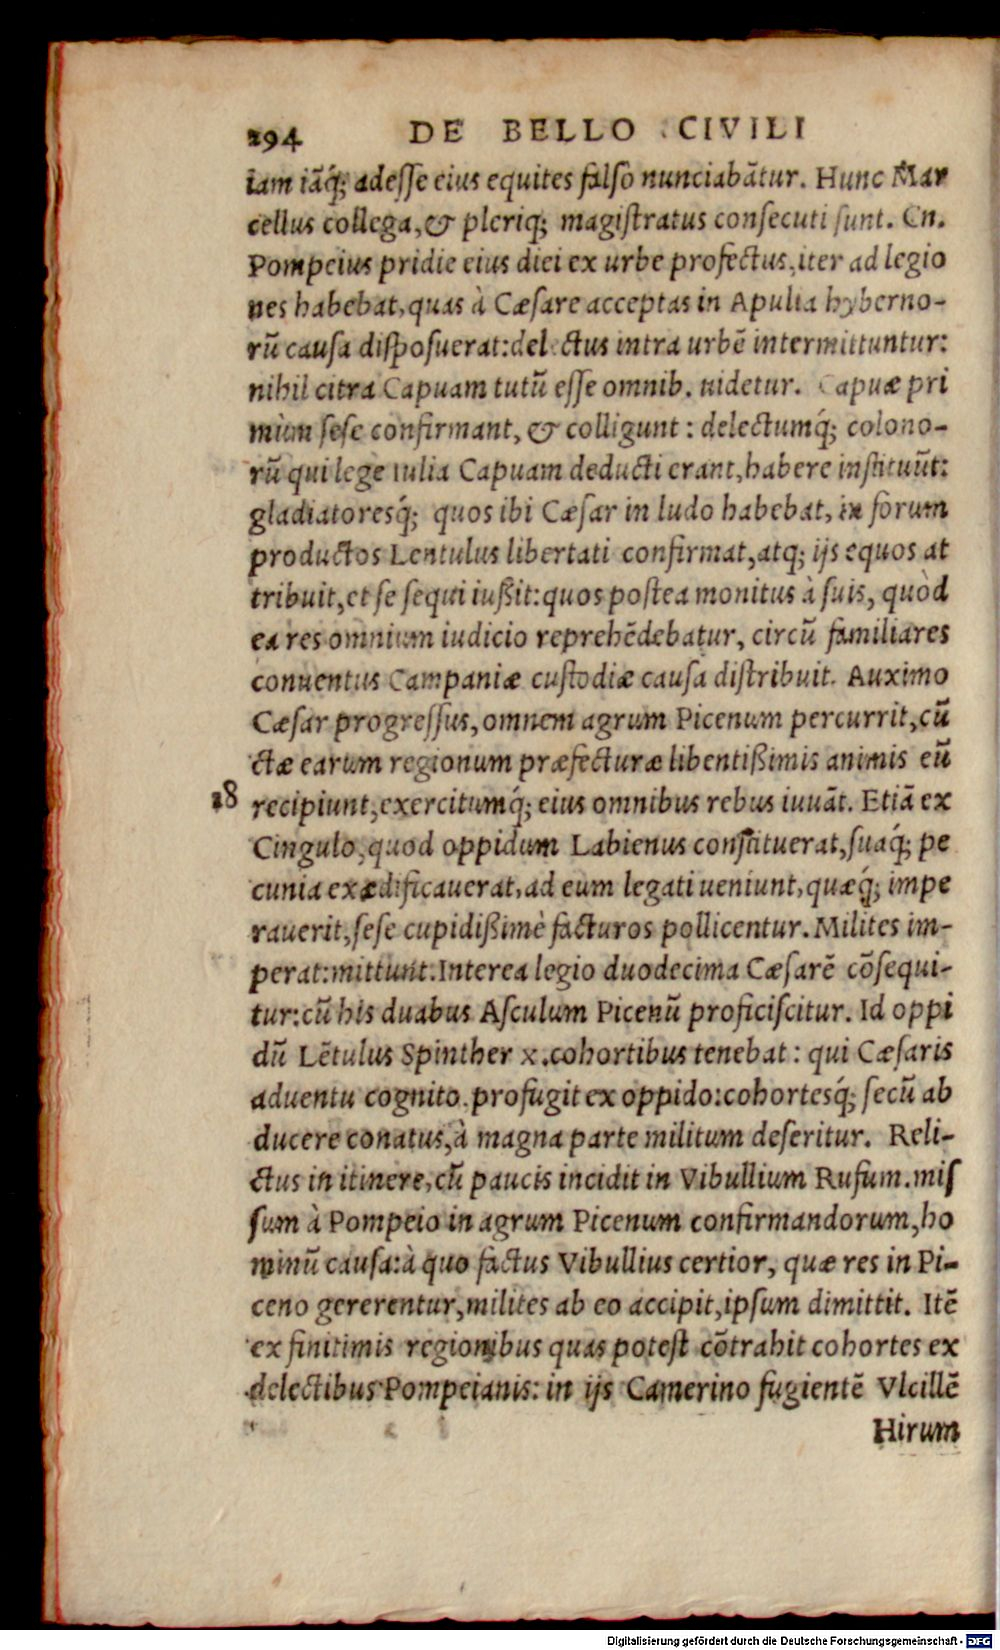 294 DE BELLO CIVILI
iam iāq́; adesse eius equites falso nunciabātur. Hunc Mar
cellus collega, & pleriq; magistratus consecuti sunt. Cn.
Pompeius pridie eius diei ex urbe profectus, iter ad legio
nes habebat, quas à Cæsare acceptas in Apulia hyberno-
rū causa disposuerat: delectus intra urbē intermittuntur:
nihil citra Capuam tutū esse omnib. uidetur. Capuæ pri
mùm sese confirmant, & colligunt: delectumq́; colono-
rū qui lege Iulia Capuam deducti erant, habere instituūt:
gladiatoresq́; quos ibi Cæsar in ludo habebat, in forum
productos Lentulus libertati confirmat, atq; ijs equos at
tribuit, et se sequi iußit: quos postea monitus à suis, quòd
ea res omnium iudicio reprehēdebatur, circū familiares
conuentus Campaniæ custodiæ causa distribuit. Auximo
Cæsar progressus, omnem agrum Picenum percurrit, cū
ctæ earum regionum præfecturæ libentißimis animis eū
18 recipiunt, exercitumq́; eius omnibus rebus iuuāt. Etiā ex
Cingulo, quod oppidum Labienus constituerat, suaq́; pe
cunia exædificauerat, ad eum legati ueniunt, quæq́; impe
rauerit, sese cupidißimè facturos pollicentur. Milites im-
perat: mittunt. Interea legio duodecima Cæsarē cōsequi-
tur: cū his duabus Asculum Picenū proficiscitur. Id oppi
dū Lētulus Spinther x. cohortibus tenebat: qui Cæsaris
aduentu cognito, profugit ex oppido: cohortesq́; secū ab
ducere conatus, à magna parte militum deseritur. Reli-
ctus in itinere, cū paucis incidit in Vibullium Rufum. mis
sum à Pompeio in agrum Picenum confirmandorum, ho
minū causa: à quo factus Vibullius certior, quæ res in Pi-
ceno gererentur, milites ab eo accipit, ipsum dimittit. Itē
ex finitimis regionibus quas potest cōtrahit cohortes ex
delectibus Pompeianis: in ijs Camerino fugientē Vlcillē
Hirum
Digitalisierung gefördert durch die Deutsche Forschungsgemeinschaft - DFG